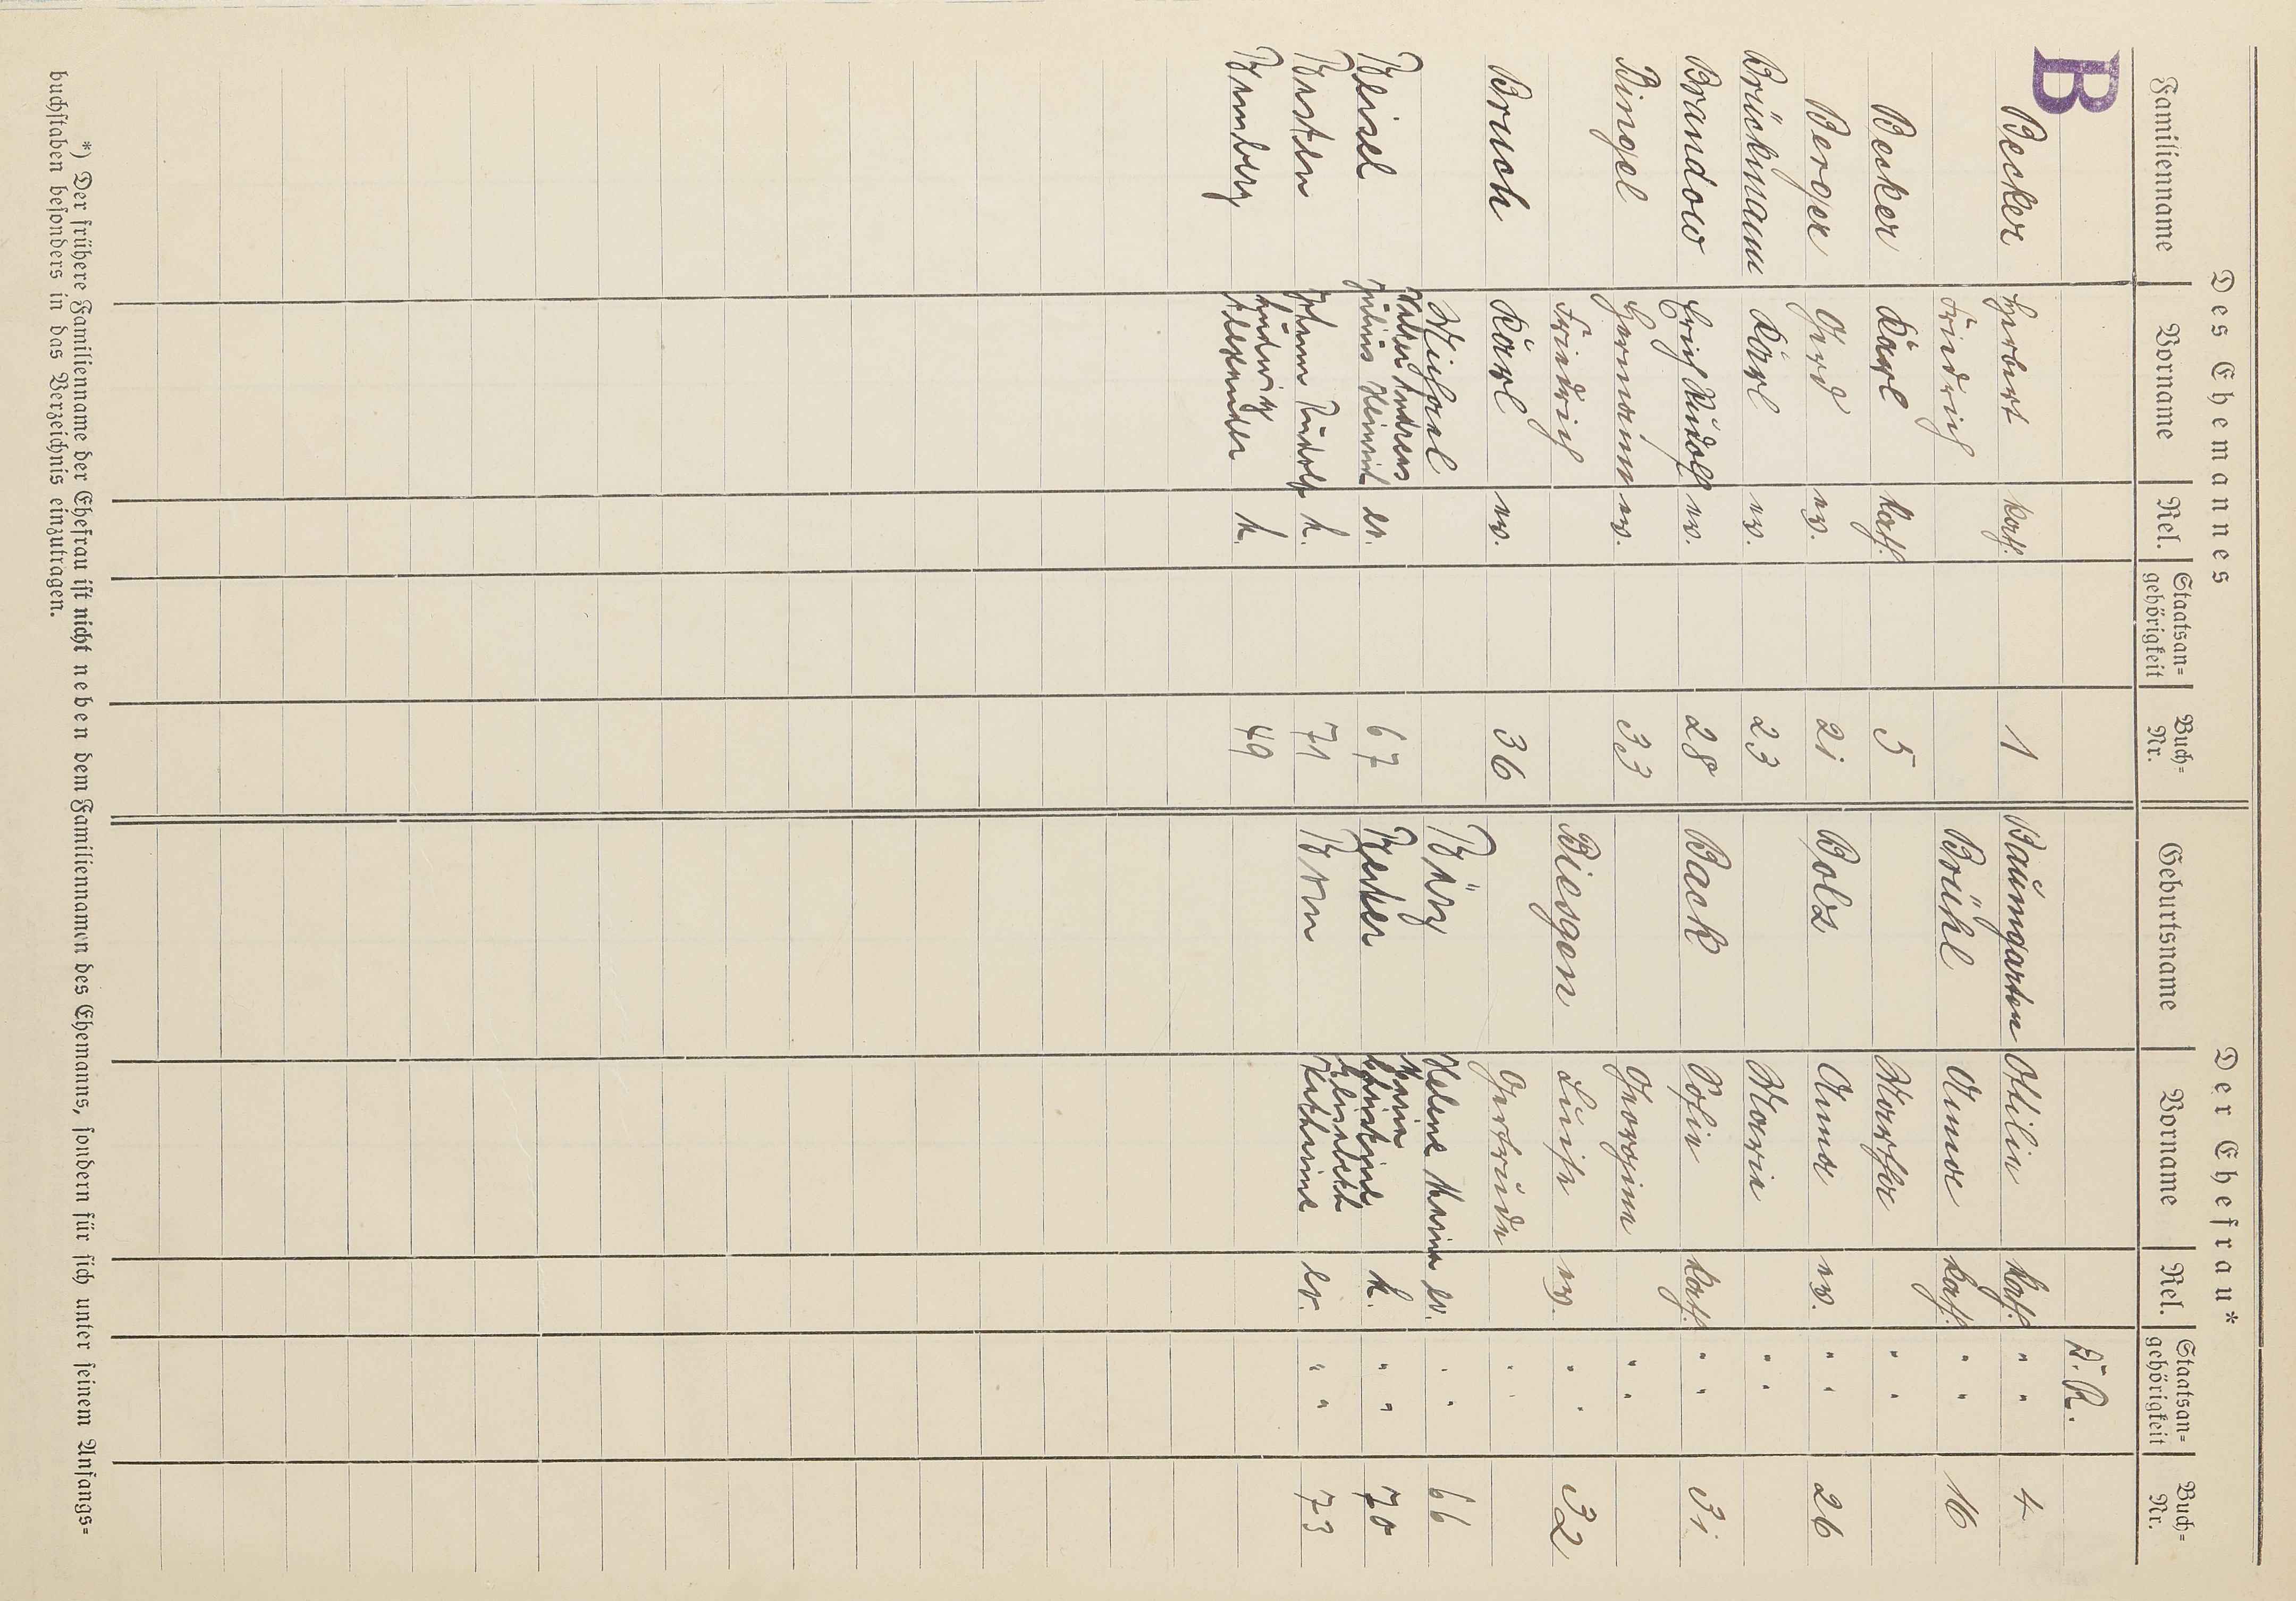 Des Ehemannes Der Ehefrau*
Familienname Vorname Rel. Staatsan=gehörigkeit Buch=Nr. Geburtsname Vorname Rel. Staatsan=gehörigkeit Buch=Nr.
B
D.R.
Becker Herbert kath. 1 Baumgarten Otilie kath. " " 4
Friedrich Brühl Anna kath. " " 16
Becker Karl kath. 5 Martha " "
Berger Gerd ev. 21 Bolz Anna ev. " " 26
Brückmann Karl ev. 23 Maria " "
Brandow Erich Rudolf ev. 28 Back Sofie kath. " " 31
Bingel Hermann ev. 33 Georgine " "
Friedrich Biesgen Luise ev. " " 32
Bruch Karl ev. 36 Gertrude " "
Michael Bürg Helene Maria ev. " " 66
Beisel Walter Andreas
Julius Heinrich ev. 67 Becker Maria
Christine k. " " 70
Basten Johann Rudolf k. 71 Born Elisabeth
Katharine ev. " " 73
Bamberg Ludwig
Alexander k. 49
*) Der frühere Familienname der Ehefrau ist nicht neben dem Familiennamen des Ehemanns, sondern für sich unter seinem Anfangs=
buchstaben besonders in das Verzeichnis einzutragen.